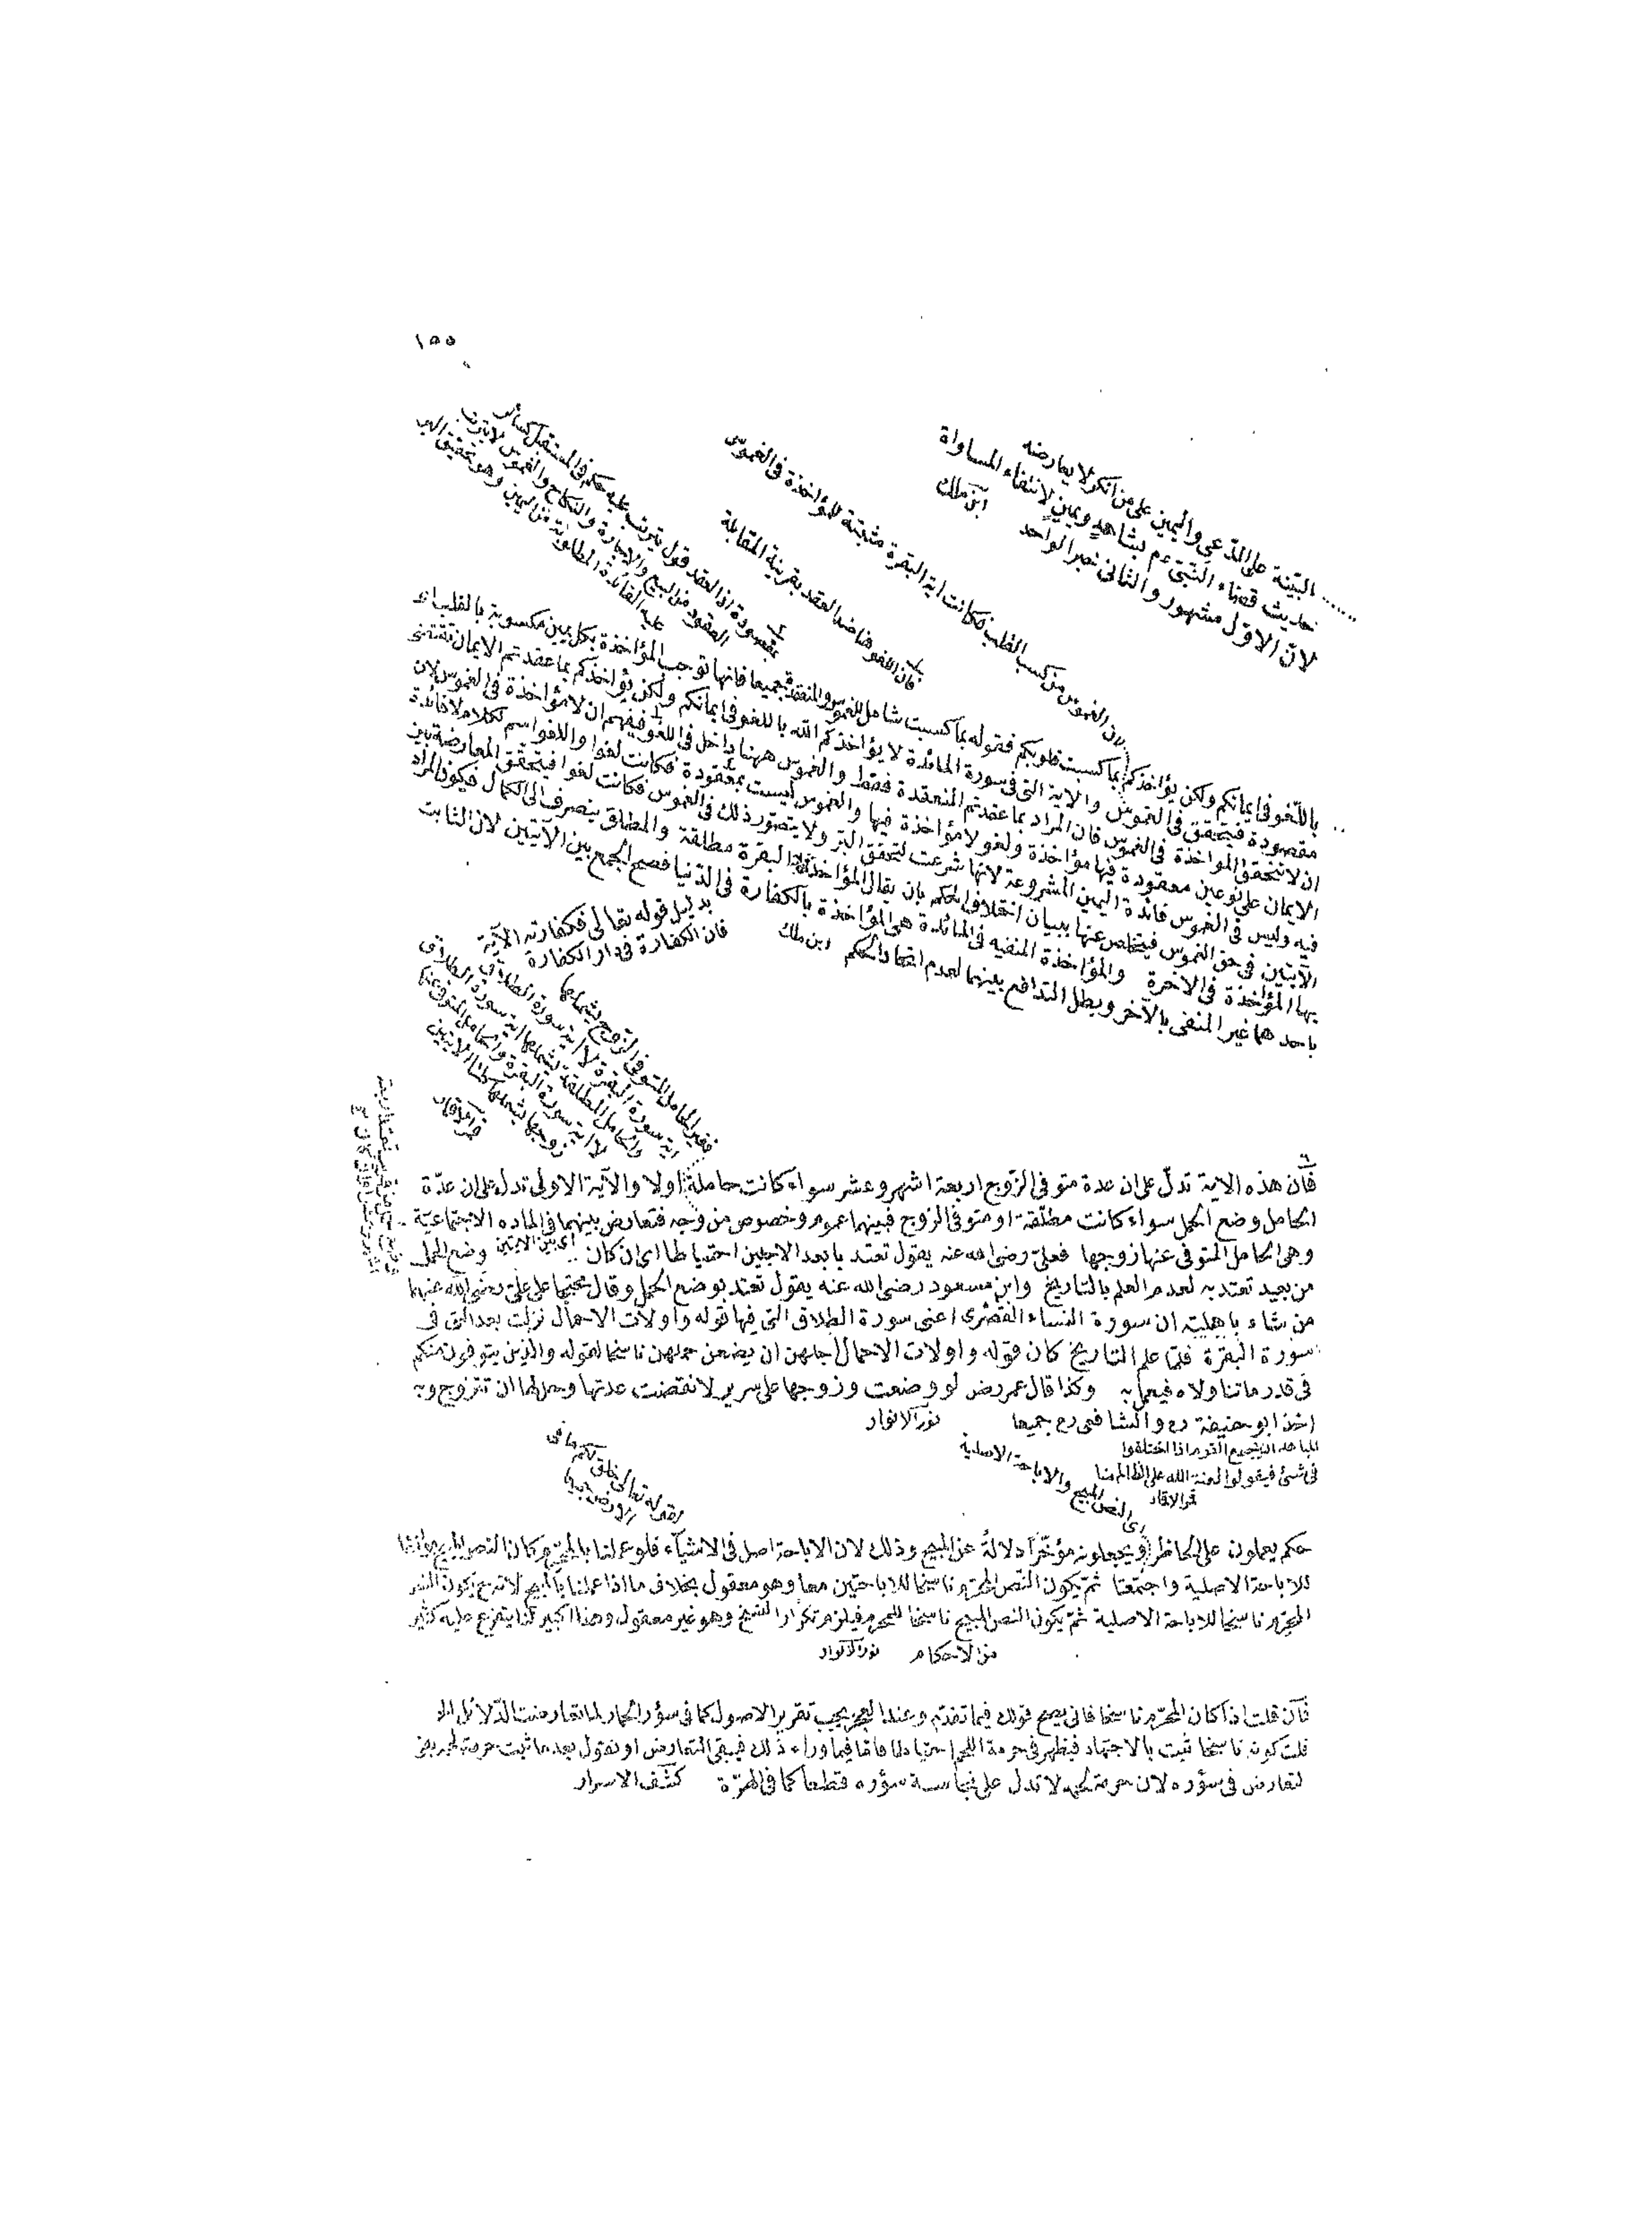 ١٥٥
البيّنة على المدّعي واليمين على من انكر لا يعارضه
حديث قضاء النبيّ عم بشاهد ويمين لانتفاء المساواة
لانّ الاوّل مشهور والثانى خبر الواحد ابن ملك
لان الغموس من كسب القلب فكانت اية البقرة مثبتة للمؤاخذة فى الغموس
فان اللغو هنا ضد العقد بقرينة المقابلة
مقصودة اذ العقد قول يترتب عليه حكم فى المستقبل كسائر
العقود من البيع والاجارة والنكاح والغموس لا يترتب
عليه الفائدة المطلوبة من اليمين وهو تحقيق البر
باللّغو فى ايمانكم ولكن يؤاخذكم بما كسبت قلوبكم فقوله بما كسبت شامل للغموس والمنعقدة جميعا فانها توجب المؤاخذة بكل يمين مكسوبة بالقلب اى
مقصودة فيتحقق فى الغموس والاية التى فى سورة المائدة لا يؤاخذكم الله باللغو فى ايمانكم ولكن يؤاخذكم بما عقدتم الايمان تقتضى
ان لا تتحقق المواخذة فى الغموس فان المراد بما عقدتم المنعقدة فقط والغموس ههنا داخل فى اللغو فيفهم ان لا مؤاخذة فى الغموس لان
الايمان على نوعين معقودة فيها مؤاخذة ولغو لا مؤاخذة فيها والغموس ليست بمعقودة فكانت لغوا واللغو اسم لكلام لا فائدة
فيه وليس فى الغموس فائدة اليمين المشروعة لانها شرعت لتحقق البر ولا يتصور ذلك فى الغموس فكانت لغوا فيتحقق المعارضة بين
الآيتين فى حق الغموس فيتخلص عنها ببيان اختلاف الحكم بان يقال المؤاخذة فى البقرة مطلقة والمطلق ينصرف الى الكمال فيكون المراد
بها المؤاخذة فى الآخرة والمؤاخذة المنفيه فى المائدة هى المؤاخذة بالكفارة فى الدّنيا فصح الجمع بين الآيتين لان الثابت
باحدهما غير المنفى بالآخر وبطل التدافع بينهما لعدم اتحاد الحكم ابن ملك
بدليل قوله تعالى فكفارته الآية
فان الكفارة فى دار الكفارة
فغير الحامل المتوفى الزوج يشملها
اية سورة البقرة لا اية سورة الطلاق
والحامل المطلقة يشملها اية سورة الطلاق
لا اية سورة البقرة والحامل المتوفى عنها
زوجها يشملها كلتا الآيتين
قمر الاقمار
فان هذه الاية تدلّ على ان عدة متوفى الزوج اربعة اشهر وعشر سواء كانت حاملة اولا والآية الاولى تدل على ان عدّة
الحامل وضع الحمل سواء كانت مطلّقة او متوفى الزوج فبينهما عموم وخصوص من وجه فتعارض بينهما فى الماده الاجتماعيّة
وهى الحامل المتوفى عنها زوجها فعلىّ رضى الله عنه يقول تعتد بابعد الاجلين احتياطا اى ان كان وضع الحمل
اى بين الايتين
من بعيد تعتد به لعدم العلم بالتاريخ وابن مسعود رضى الله عنه يقول تعتد بوضع الحمل وقال محتجا على علىّ رضى الله عنهما
من شاء باهلته ان سورة النساء القصرى اعنى سورة الطلاق التى فيها قوله واولات الاحمال نزلت بعد التى فى
سورة البقرة فلمّا علم التاريخ كان قوله واولات الاحمال اجلهن ان يضعن حملهن ناسخا لقوله والذين يتوفون منكم
فى قدر ما تناولاه فيعمل به وكذا قال عمر رض لو وضعت وزوجها على سرير لانقضت عدتها وحل لها ان تتزوج وبه
اخذ ابو حنيفة رح والشافعى رح جميعا نور الانوار
المباهلة ان يجتمع القوم اذا اختلفوا
فى شئ فيقولوا لعنة الله على الظالم منا
قمر الاقمار
اى النص المبيح والاباحة الاصلية
لقوله تعالى خلق لكم ما فى
الارض جميعا
حكم يعملون على الحاظر ويجعلونه مؤخّرا دلالة عن المبيح وذلك لان الاباحة اصل فى الاشياء فلو عملنا بالمحرّم كان النص المبيح موافقا
للاباحة الاصلية واجتمعتا ثمّ يكون النّص المحرّم ناسخا للاباحتين معا وهو معقول بخلاف ما اذا عملنا بالمبيح لانه ح يكون النص
المحرّم ناسخا للاباحة الاصلية ثمّ يكون النص المبيح ناسخا للمحرم فيلزم تكرار النسخ وهو غير معقول وهذا اصل كبير لنا يتفرع عليه كثير
من الاحكام نور الانوار
فان قلت اذا كان المحرّم ناسخا فانى يصح قولك فيما تقدّم وعند العجز يجب تقرير الاصول كما فى سؤر الحمار لما تعارضت الدّلائل الخ
قلت كونه ناسخا ثبت بالاجتهاد فيظهر فى حرمة اللحم احتياطا فيما وراء ذلك فيبقى التعارض او نقول بعد ما ثبت حرمة لحمه بقى
لتعارض فى سؤره لان حرمة لحمه لا تدل على نجاسة سؤره قطعا كما فى الهرّة كشف الاسرار